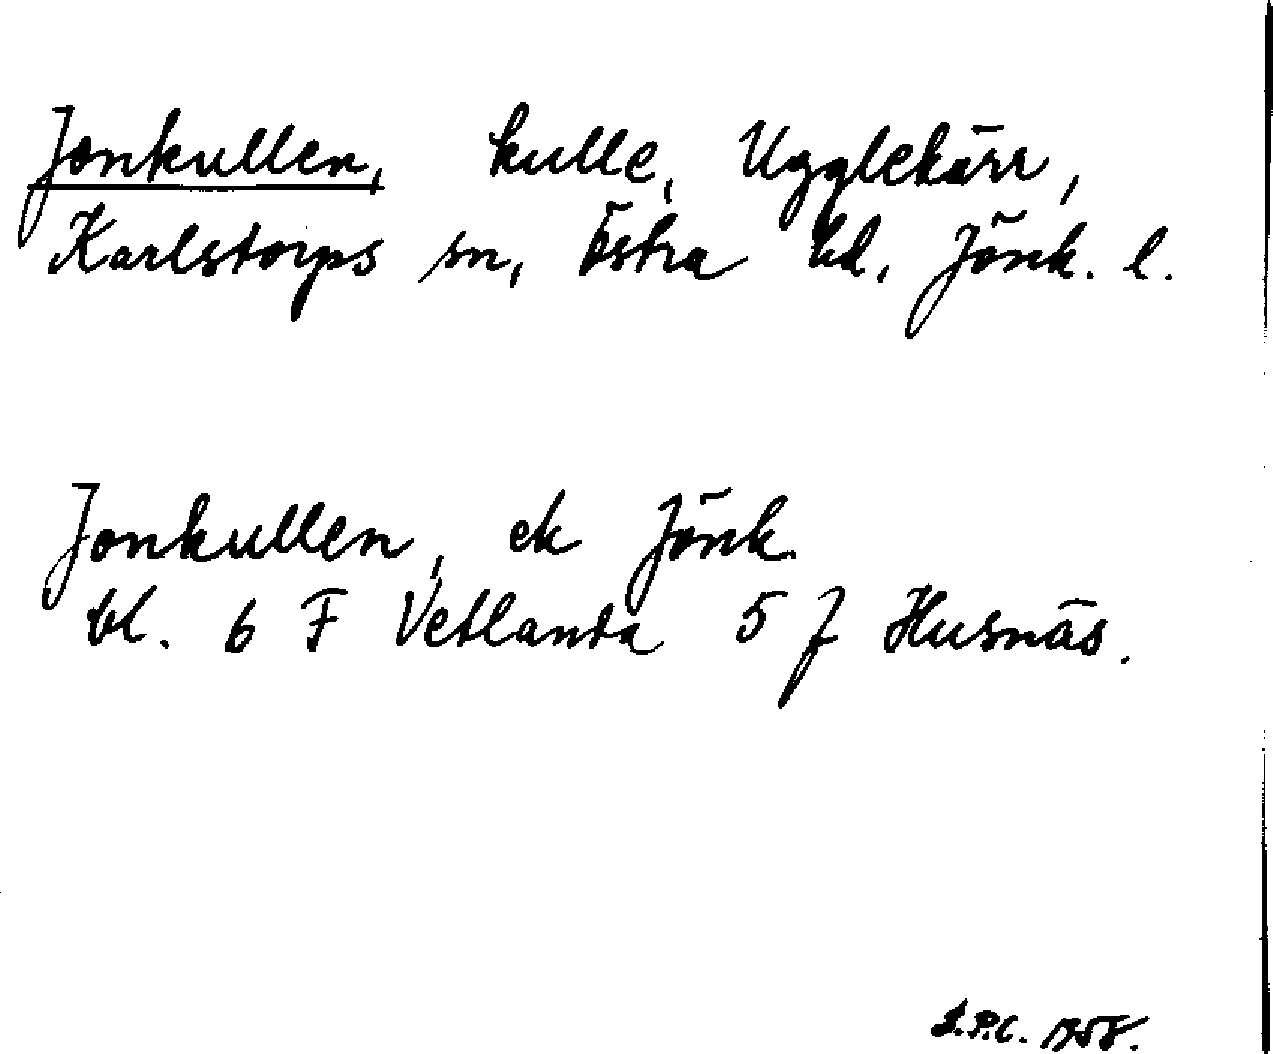 Jonkullen, kulle, Ugglekärr,
Karlstorps sn, Östra hd, Jönk. l.
Jonkullen, ek Jönk.
bl. 6 F Vetlanda 5 f Husnäs.
1958.